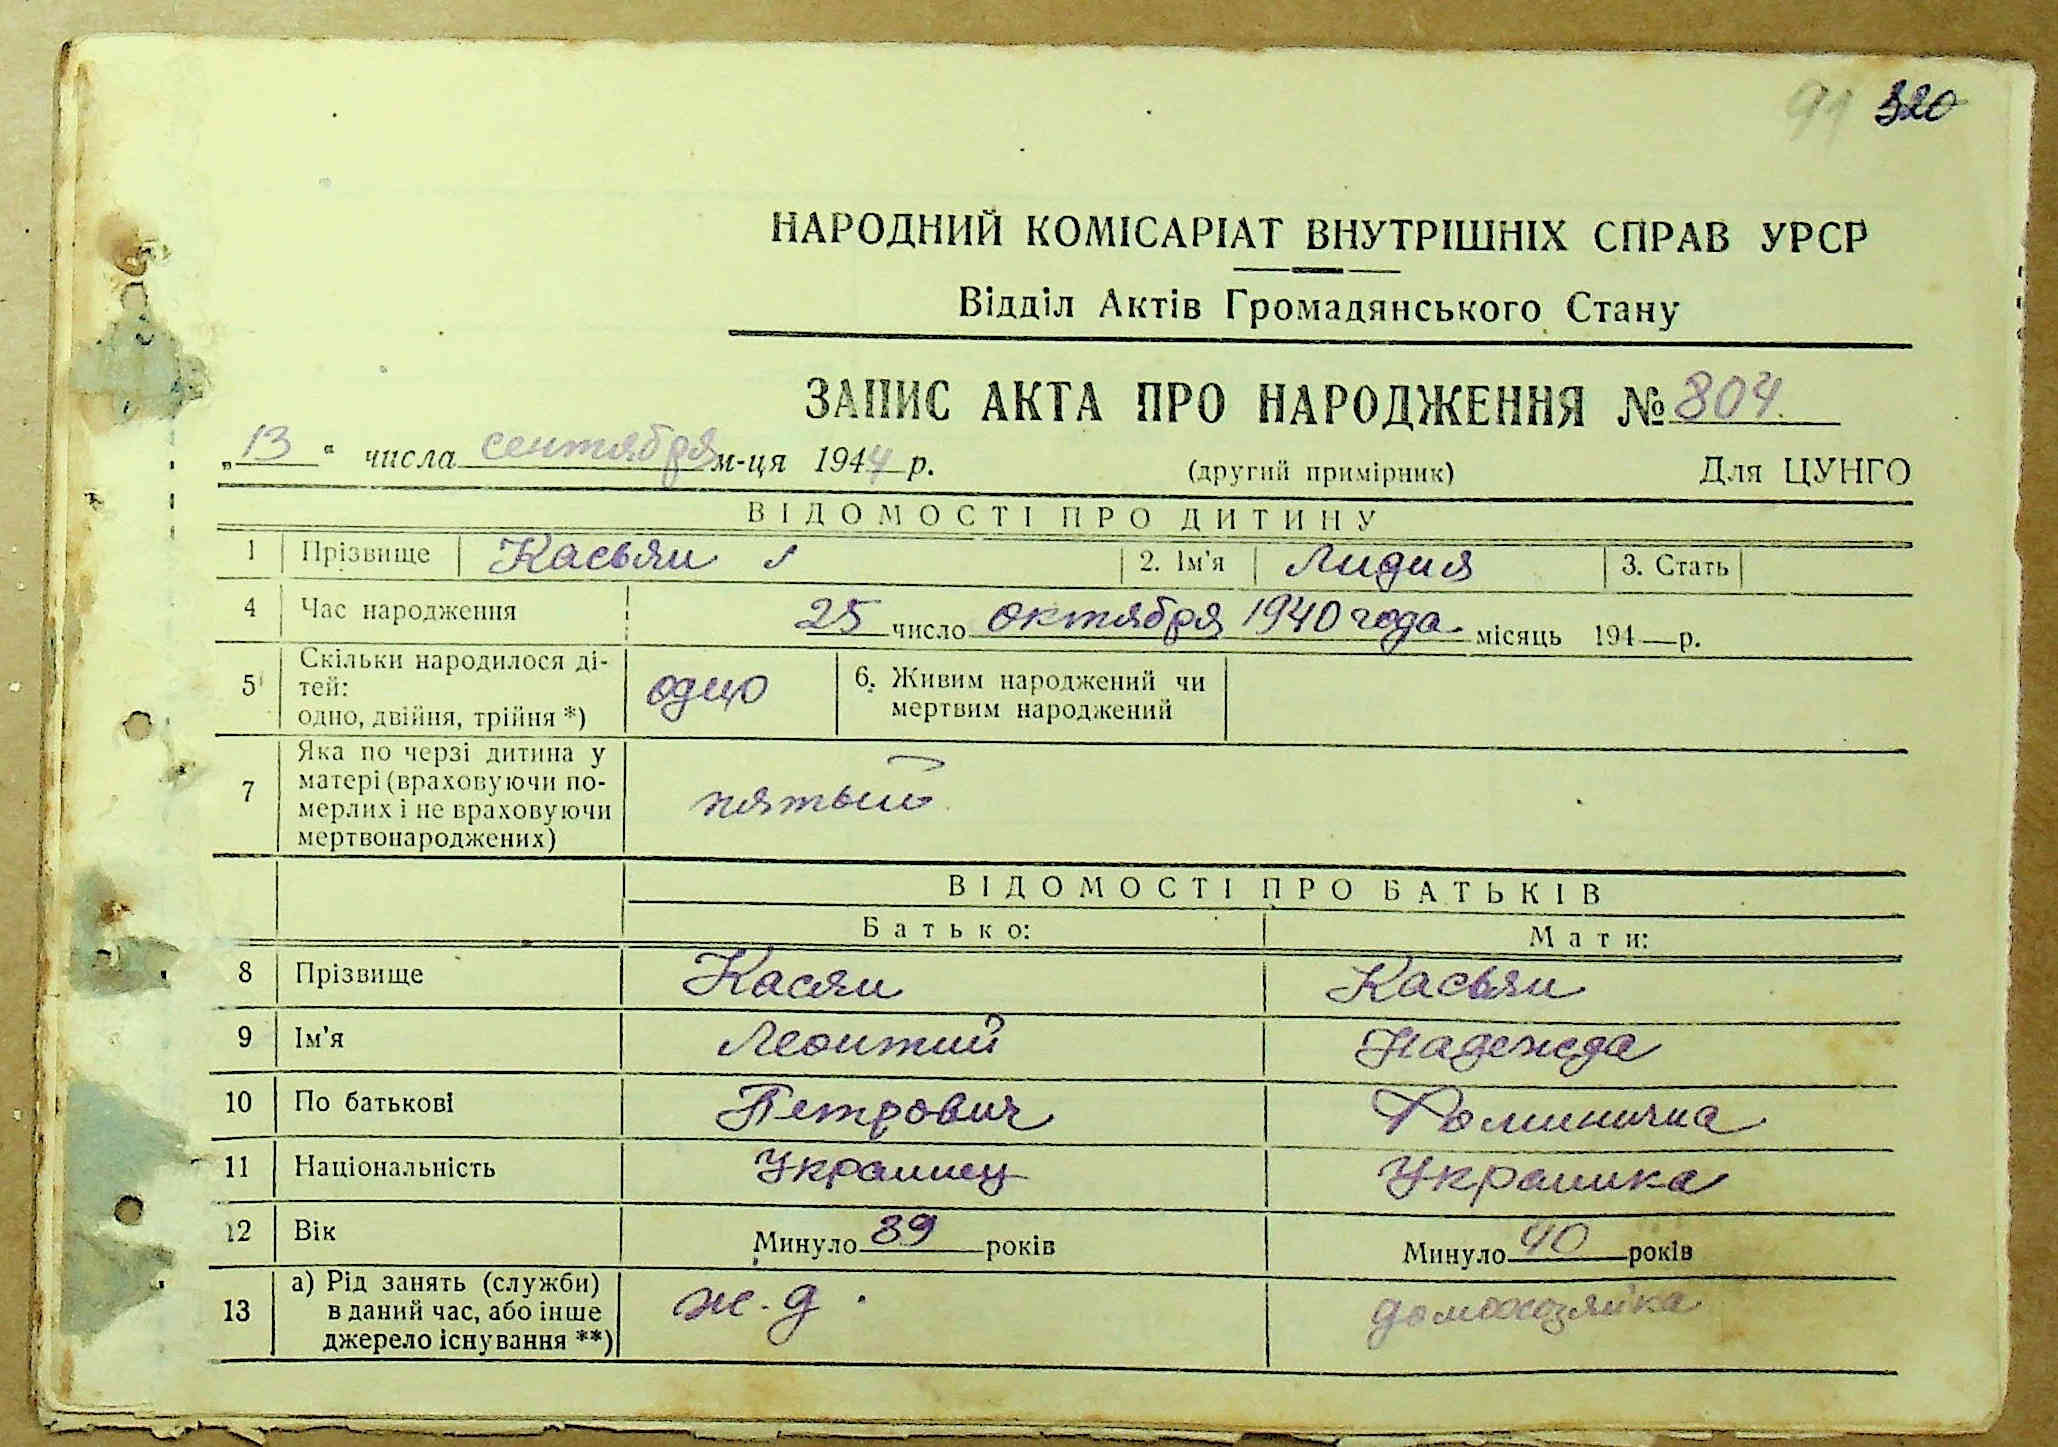 91 320
НАРОДНИЙ КОМІСАРІАТ ВНУТРІШНІХ СПРАВ УРСР
Відділ Актів Громадянського Стану
ЗАПИС АКТА ПРО НАРОДЖЕННЯ № 804
„13“ числа сентября м-ця 1944 р. (другий примірник) Для ЦУНГО
ВІДОМОСТІ ПРО ДИТИНУ
1 Прізвище Касьян 2. Ім'я Лидия 3. Стать
4 Час народження 25 число октября 1940 года місяць 194—р.
5 Скільки народилося ді-
тей:
одно, двійня, трійня *) одно 6. Живим народжений чи
мертвим народжений
7 Яка по черзі дитина у
матері (враховуючи по-
мерлих і не враховуючи
мертвонароджених) пятый
ВІДОМОСТІ ПРО БАТЬКІВ
Батько: Мати:
8 Прізвище Касян Касьян
9 Ім'я Леонтий Надежда
10 По батькові Петрович Фоминична
11 Національність Украинец Украинка
12 Вік Минуло 39 років Минуло 40 років
13 а) Рід занять (служби)
в даний час, або інше
джерело існування **) ж.д. домохозяйка